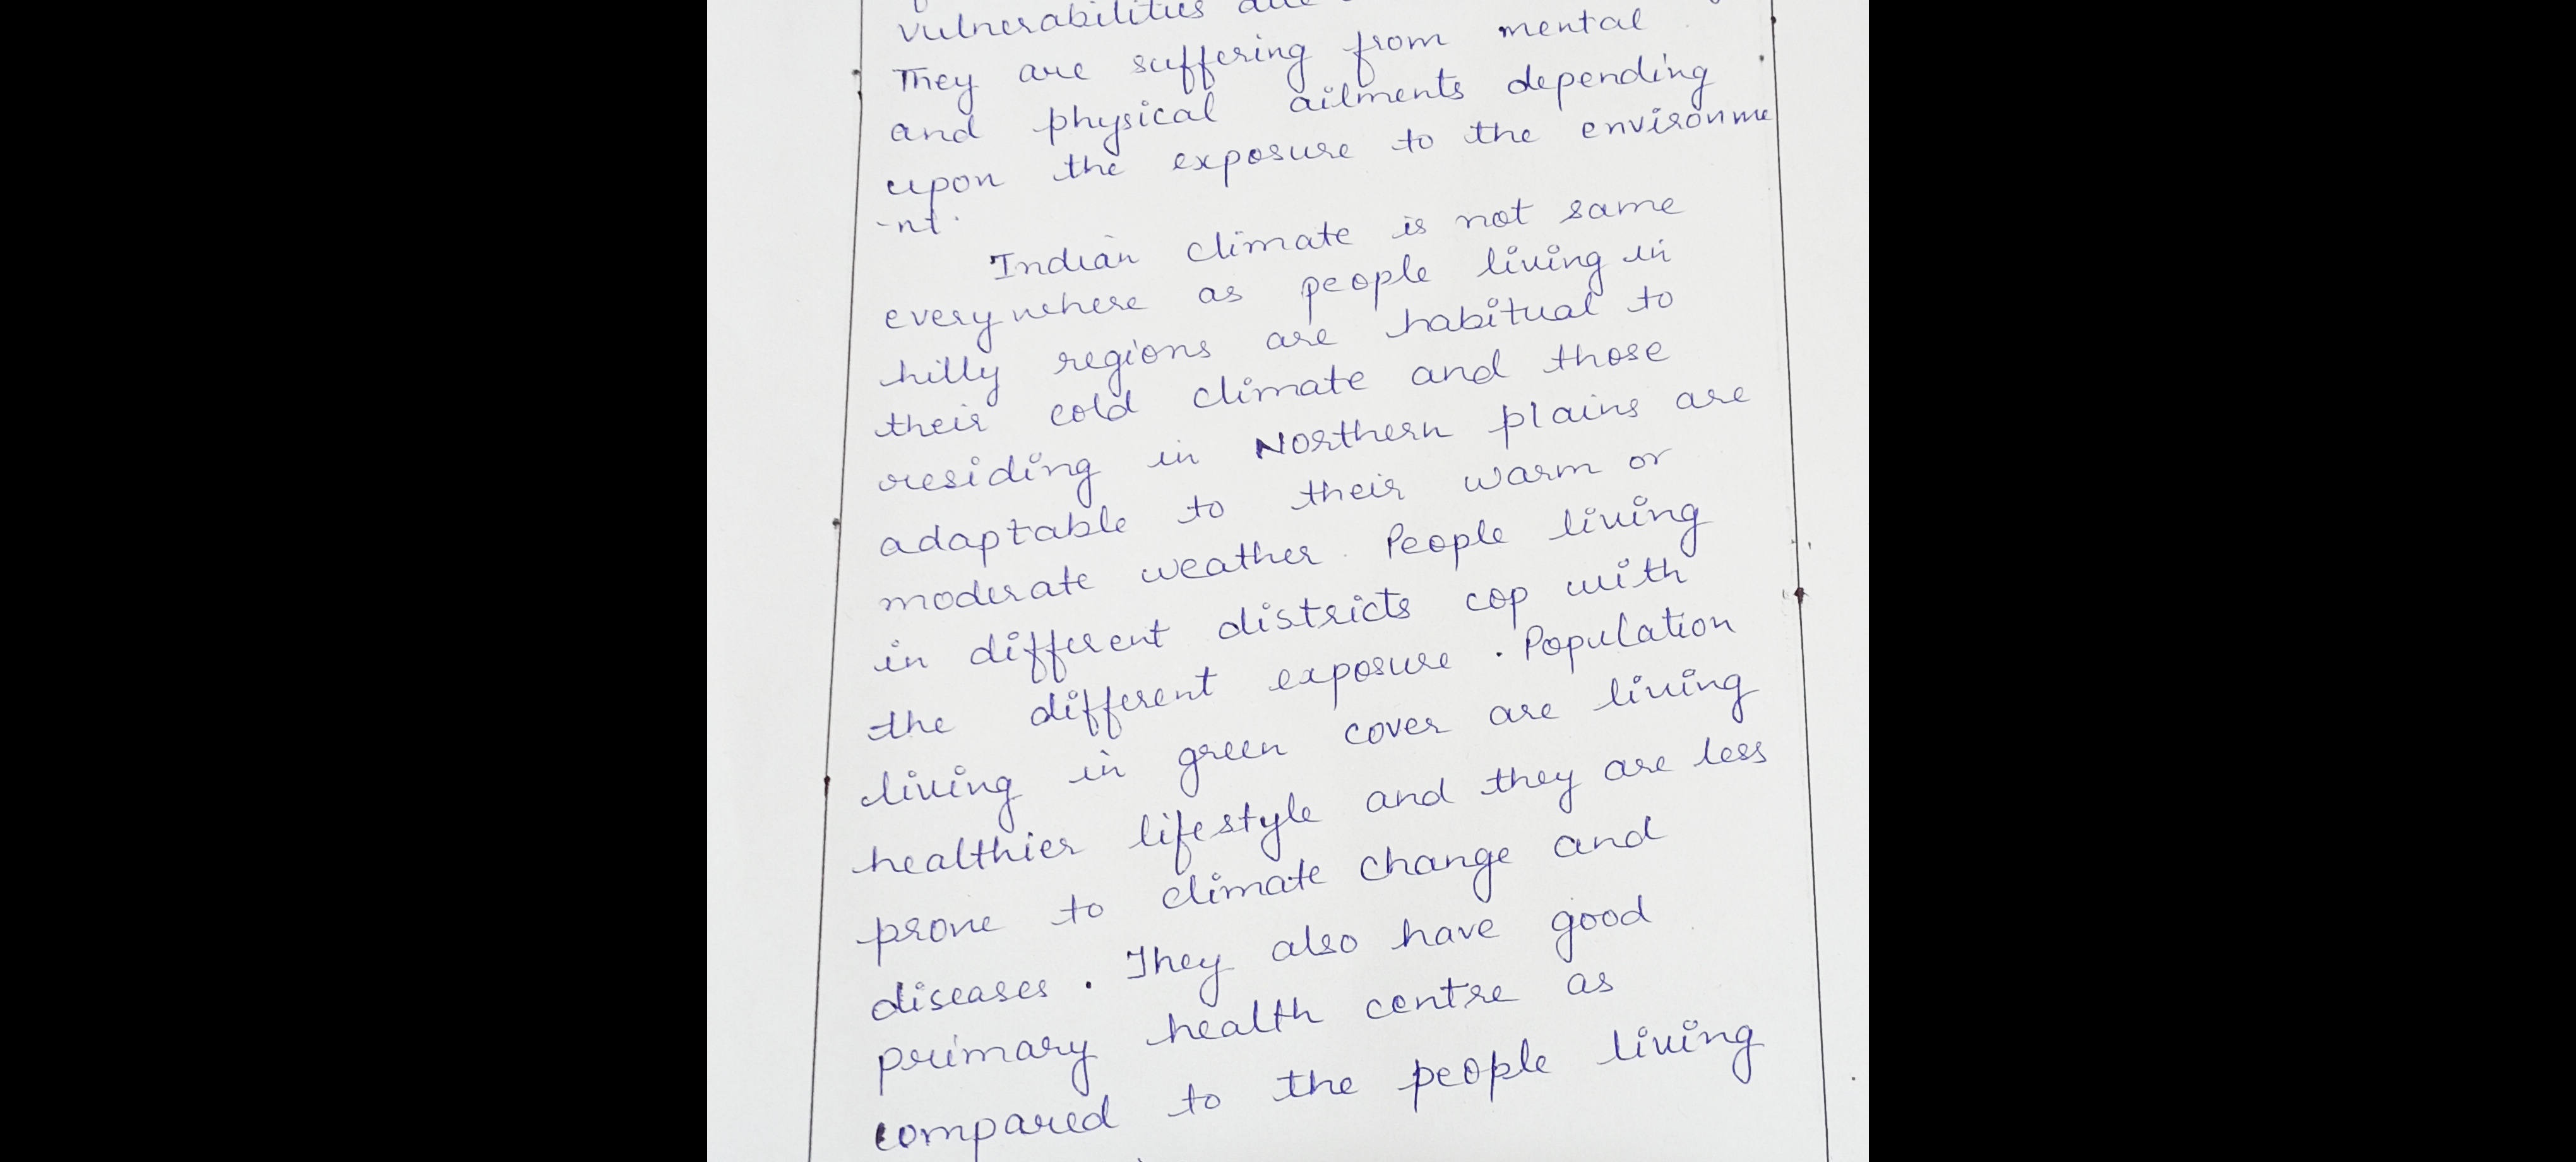 vulnerabilities
They are suffering from mental
and physical ailments depending
upon the exposure to the environme
-nt.
Indian climate is not same
everywhere as people living in
hilly regions are habitual to
their cold climate and those
residing in Northern plains are
adaptable to their warm or
moderate weather. People living
in different districts cop with
the different exposure. Population
living in green cover are living
healthier lifestyle and they are less
prone to climate change and
diseases. They also have good
primary health centre as
compared to the people living